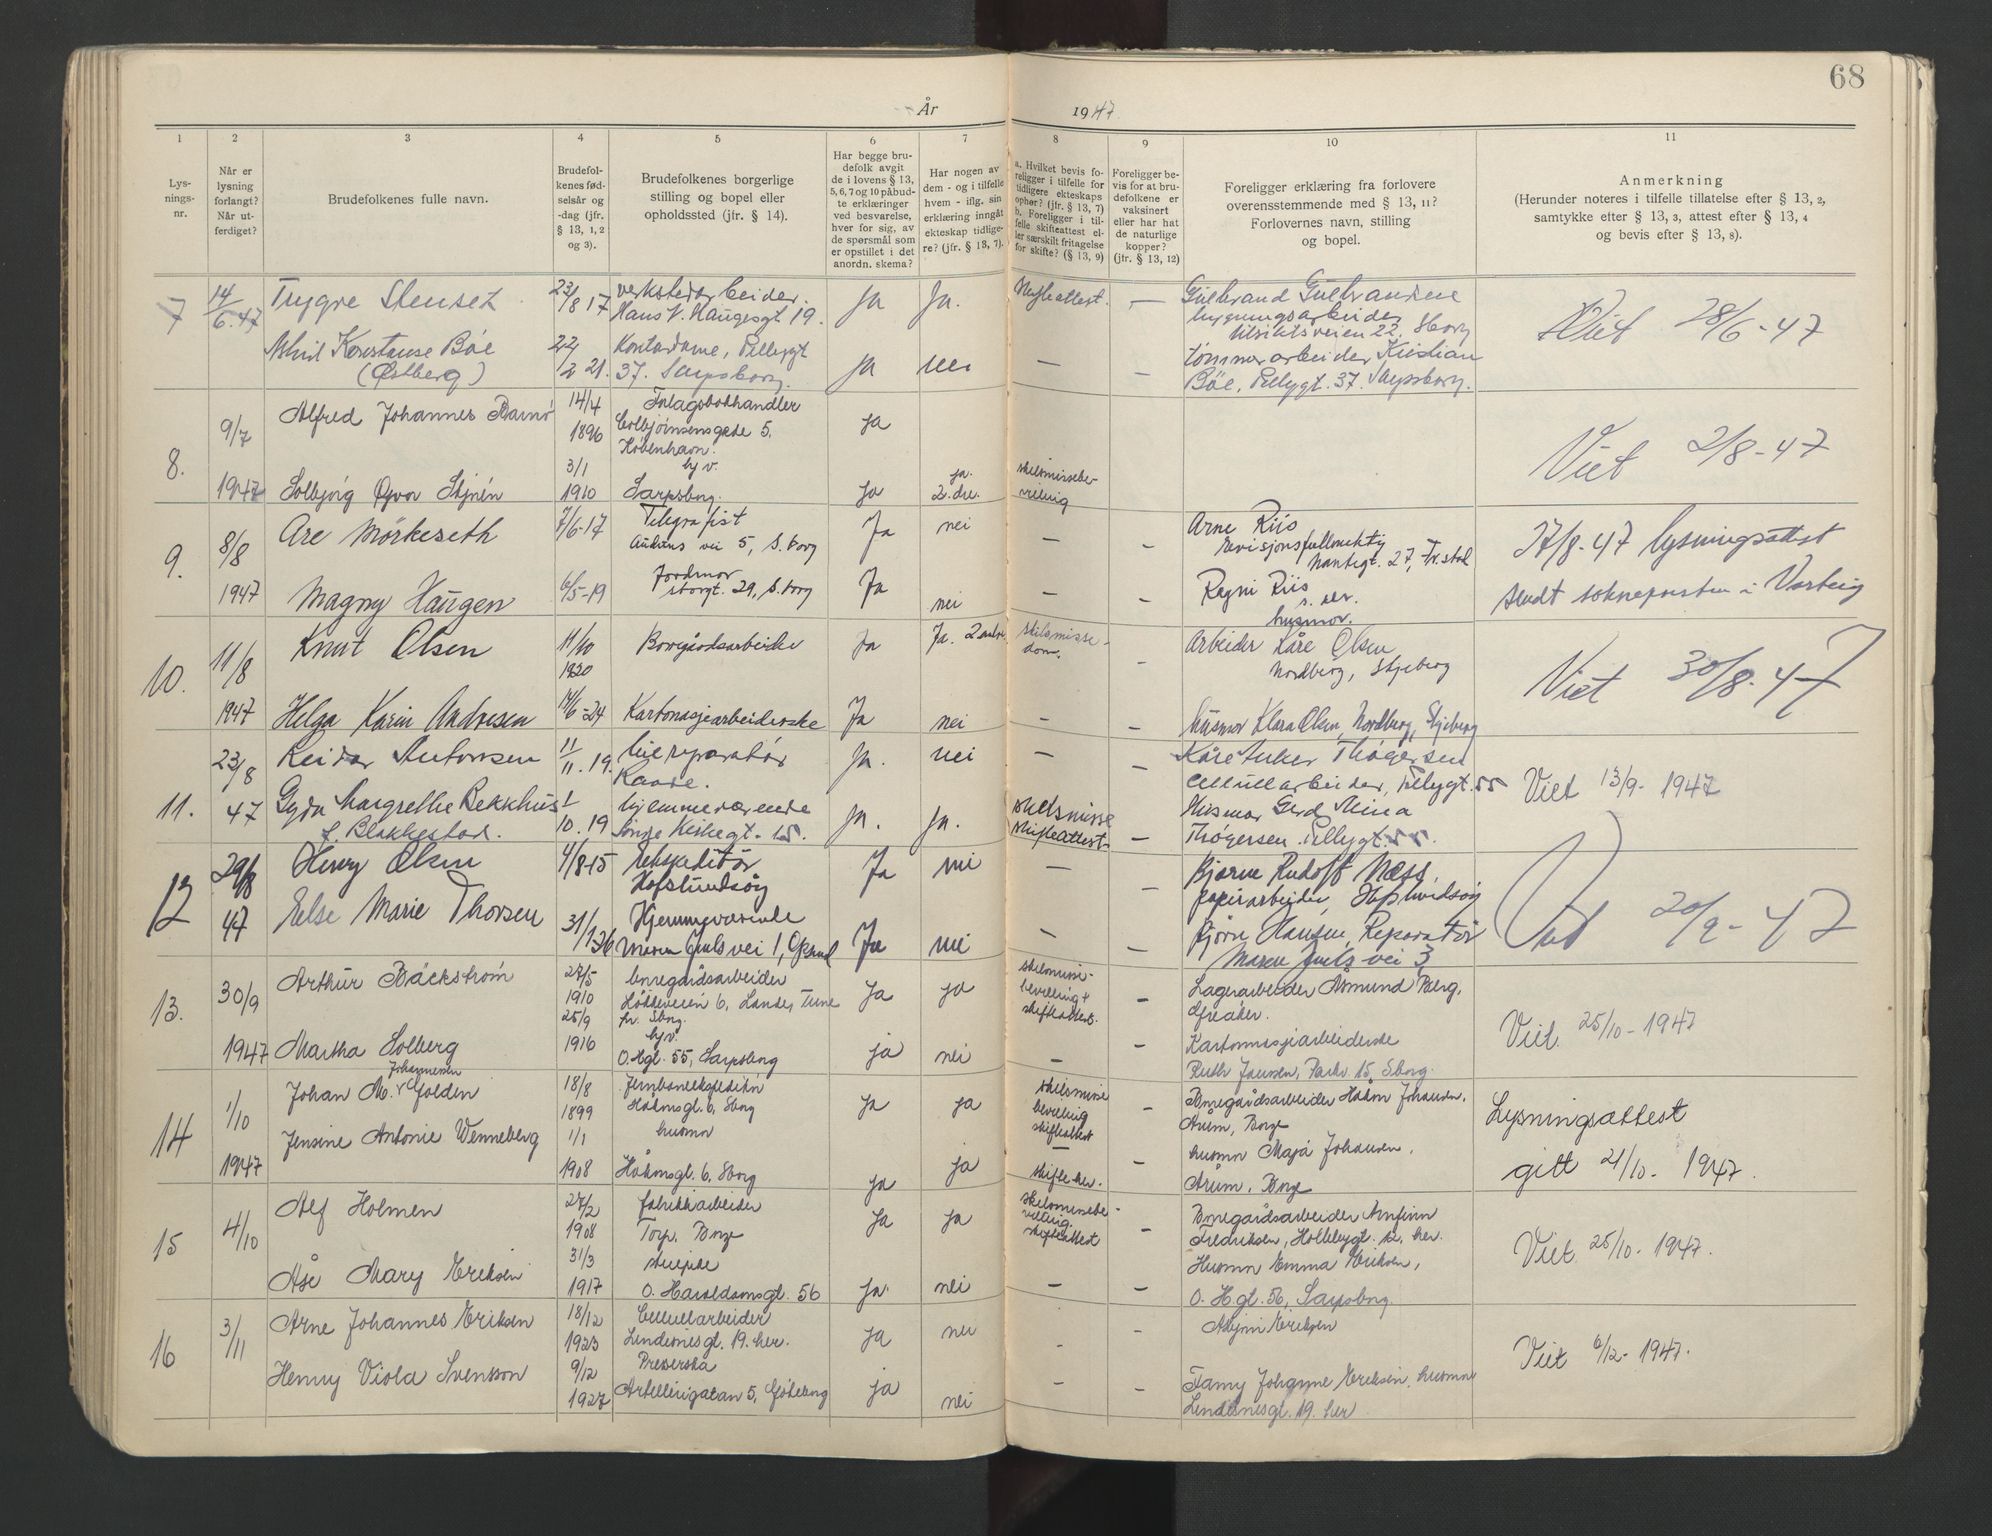 68
År 1947
1 2 3 4 5 6 7 8 9 10 11
Lysningsnr.
Når er lysning forlangt? Når utferdiget?
Brudefolkenes fulle navn.
Brudefolkenes fødselsår og -dag (jfr. § 13, 1, 2 og 3).
Brudefolkenes borgerlige stilling og bopel eller opholdssted (jfr. § 14).
Har begge brudefolk avgit de i lovens § 13, 5, 6, 7 og 10 påbudte erklæringer ved besvarelse, hver for sig, av de spørsmål som er opstillet i det anordn. skema?
Har nogen av dem - og i tilfelle hvem - iflg. sin erklæring inngått ekteskap tidligere? (jfr. § 13, 7).
a. Hvilket bevis foreligger i tilfelle for tidligere ekteskaps ophør? (jfr. § 13, 7) b. Foreligger i tilfelle skifteattest eller særskilt fritagelse for skifte? (§ 13, 9)
Foreligger bevis for at brudefolkene er vaksinert eller har hat de naturlige kopper? (jfr. § 13, 12)
Foreligger erklæring fra forlovere overensstemmende med § 13, 11? Forlovernes navn, stilling og bopel.
Anmerkning (Herunder noteres i tilfelle tillatelse efter § 13, 2, samtykke efter § 13, 3, attest efter § 13, 4 og bevis efter § 13, 8).
7
14/6.47
Trygve Stenset
23/8 17
verkstedarbeider.
Hans N. Haugesgt 19.
Ja
Ja.
Skifteattest.
—
Gulbrand Gulbrandsen
bygningsarbeider
Utsiktsveien 22, Sborg
Viet 28/6-47
Astrid Konstanse Böe
(Østberg)
22/2 21.
Kontordame, Pellygt
37. Sarpsborg.
Ja
nei
—
—
tømmerarbeider Kristian
Böe, Pellygt. 37. Sarpsborg.
8.
9/7
1947
Alfred Johannes
14/4
1896
Forlagsbokhandler
Colbjörnsensgade 5.
København.
Ja
Viet 2/8-47
Solbjørg
3/1
1910
hj v.
Sarpsborg.
Ja
ja.
2.dre.
skilsmissebevilling
9.
8/8
1947
Are Mørkeseth
7/6-17
Telegrafist
vei 5, S.borg
Ja
nei
—
—
Arne Riis
revisjonsfullmektig
27, Fr.stad
27/8-47 lysningsattest
sendt sokneprsten i Varteig
Magny Haugen
6/5-19
Jordmor
storgt. 29, S.borg
Ja
nei
—
—
Ragni Riis
husmor.
10.
11/8
1947
Knut Olsen
11/10
1920
Borgårdsarbeider
Ja
Ja. 2 andre
skilsmisse-
dom.
—
Arbeider Kåre Olsen
Nordberg, Skjeberg
Viet 30/8-47
Helga Karin Andresen
14/6-24
Kartonasjearbeiderske
Ja
nei
—
—
husmor Klara Olsen, Nordberg, Skjeberg
11.
23/8
47
Reidar Antonsen
11/11.19.
bilreparatør
Raade.
Ja.
nei
—
—
Kåre Anker Thøgersen
cellullarbeider, Pellygt. 55
Viet 13/9-1947
Gyda Margrethe Bekkhus
f. Blakkestad.
1/10.19
hjemmeværende
Kirkegt. 15.
Ja.
Ja.
skilsmisse
skifteattest
—
Husmor Gerd Alina
Thøgersen Pellygt. 55.
12
29/8
47
Henry Olsen
4/8-15
Ekspeditør
Hafslundsøy
Ja
nei
—
—
Bjarne Rudolf Næss
papirarbeider, Hafslundsøy
Viet 20/9-47
Else Marie Thorsen
31/1 26
Hjemmeværende
Maren Juels vei 1, Opsund
Ja
nei
—
—
Bjørn Hansen, Reparatör
Maren Juels vei 3
13.
30/9
1947
Arthur Bäckström
27/5
1910
Borregårdsarbeider
Høtteveien 6, Lande, Tune
pr. Sborg.
Ja
ja
skilsmisse-
bevilling +
skifteattest.
—
Lagerarbeider Åsmund Berg,
Greåker.
Viet 25/10-1947
Martha Solberg
25/9
1916
hjv.
O.Hgt. 55, Sarpsborg
ja
nei
—
—
Kartonnasjearbeiderske
Ruth Jansen, Parkv 15, Sborg.
14
1/10
1947
Johannessen
Johan M. Golden
18/8
1899
Jernbaneekspeditör
Håkonsgt. 6, Sborg
Ja
ja
skilsmisse
bevilling
skifteattest
—
Borregårdsarbeider Håkon Johansen,
Årum, Borge
Lysningsattest
gitt 21/10-1947.
Jensine Antonie Wenneberg
1/1
1908
husmor
Håkonsgt. 6, Sborg
Ja
ja
—
skifte her.
—
husmor Maja Johansen,
Årum, Borge
15
4/10
Alf Holmen
27/2
1908
fabrikkarbeider
Torp, Borge
Ja
Ja
skilsmissebe-
villing.
skifteattest
—
Borregårdsarbeider Arnfinn
Fredriksen, Hollebygt. 12, her.
Viet 25/10-1947.
Åse Mary Eriksen
31/3
1917
O. Haraldssonsgt. 56
Ja.
nei
—
—
Husmor Emma Eriksen,
O. Hgt. 56, Sarpsborg.
16
3/11
Arne Johannes Eriksen
18/12
1923
Cellullarbeider
Lindesnesgt. 19. her.
Ja
nei
-
-
Asbjørn Eriksen
Viet 6/12-1947.
Henny Viola Svensson
9/12
1927
Presserska
Artillerigatan 5, Göteborg
ja
nei
—
—
Fanny Johanne Eriksen, husmor
Lindesnesgt. 19. her